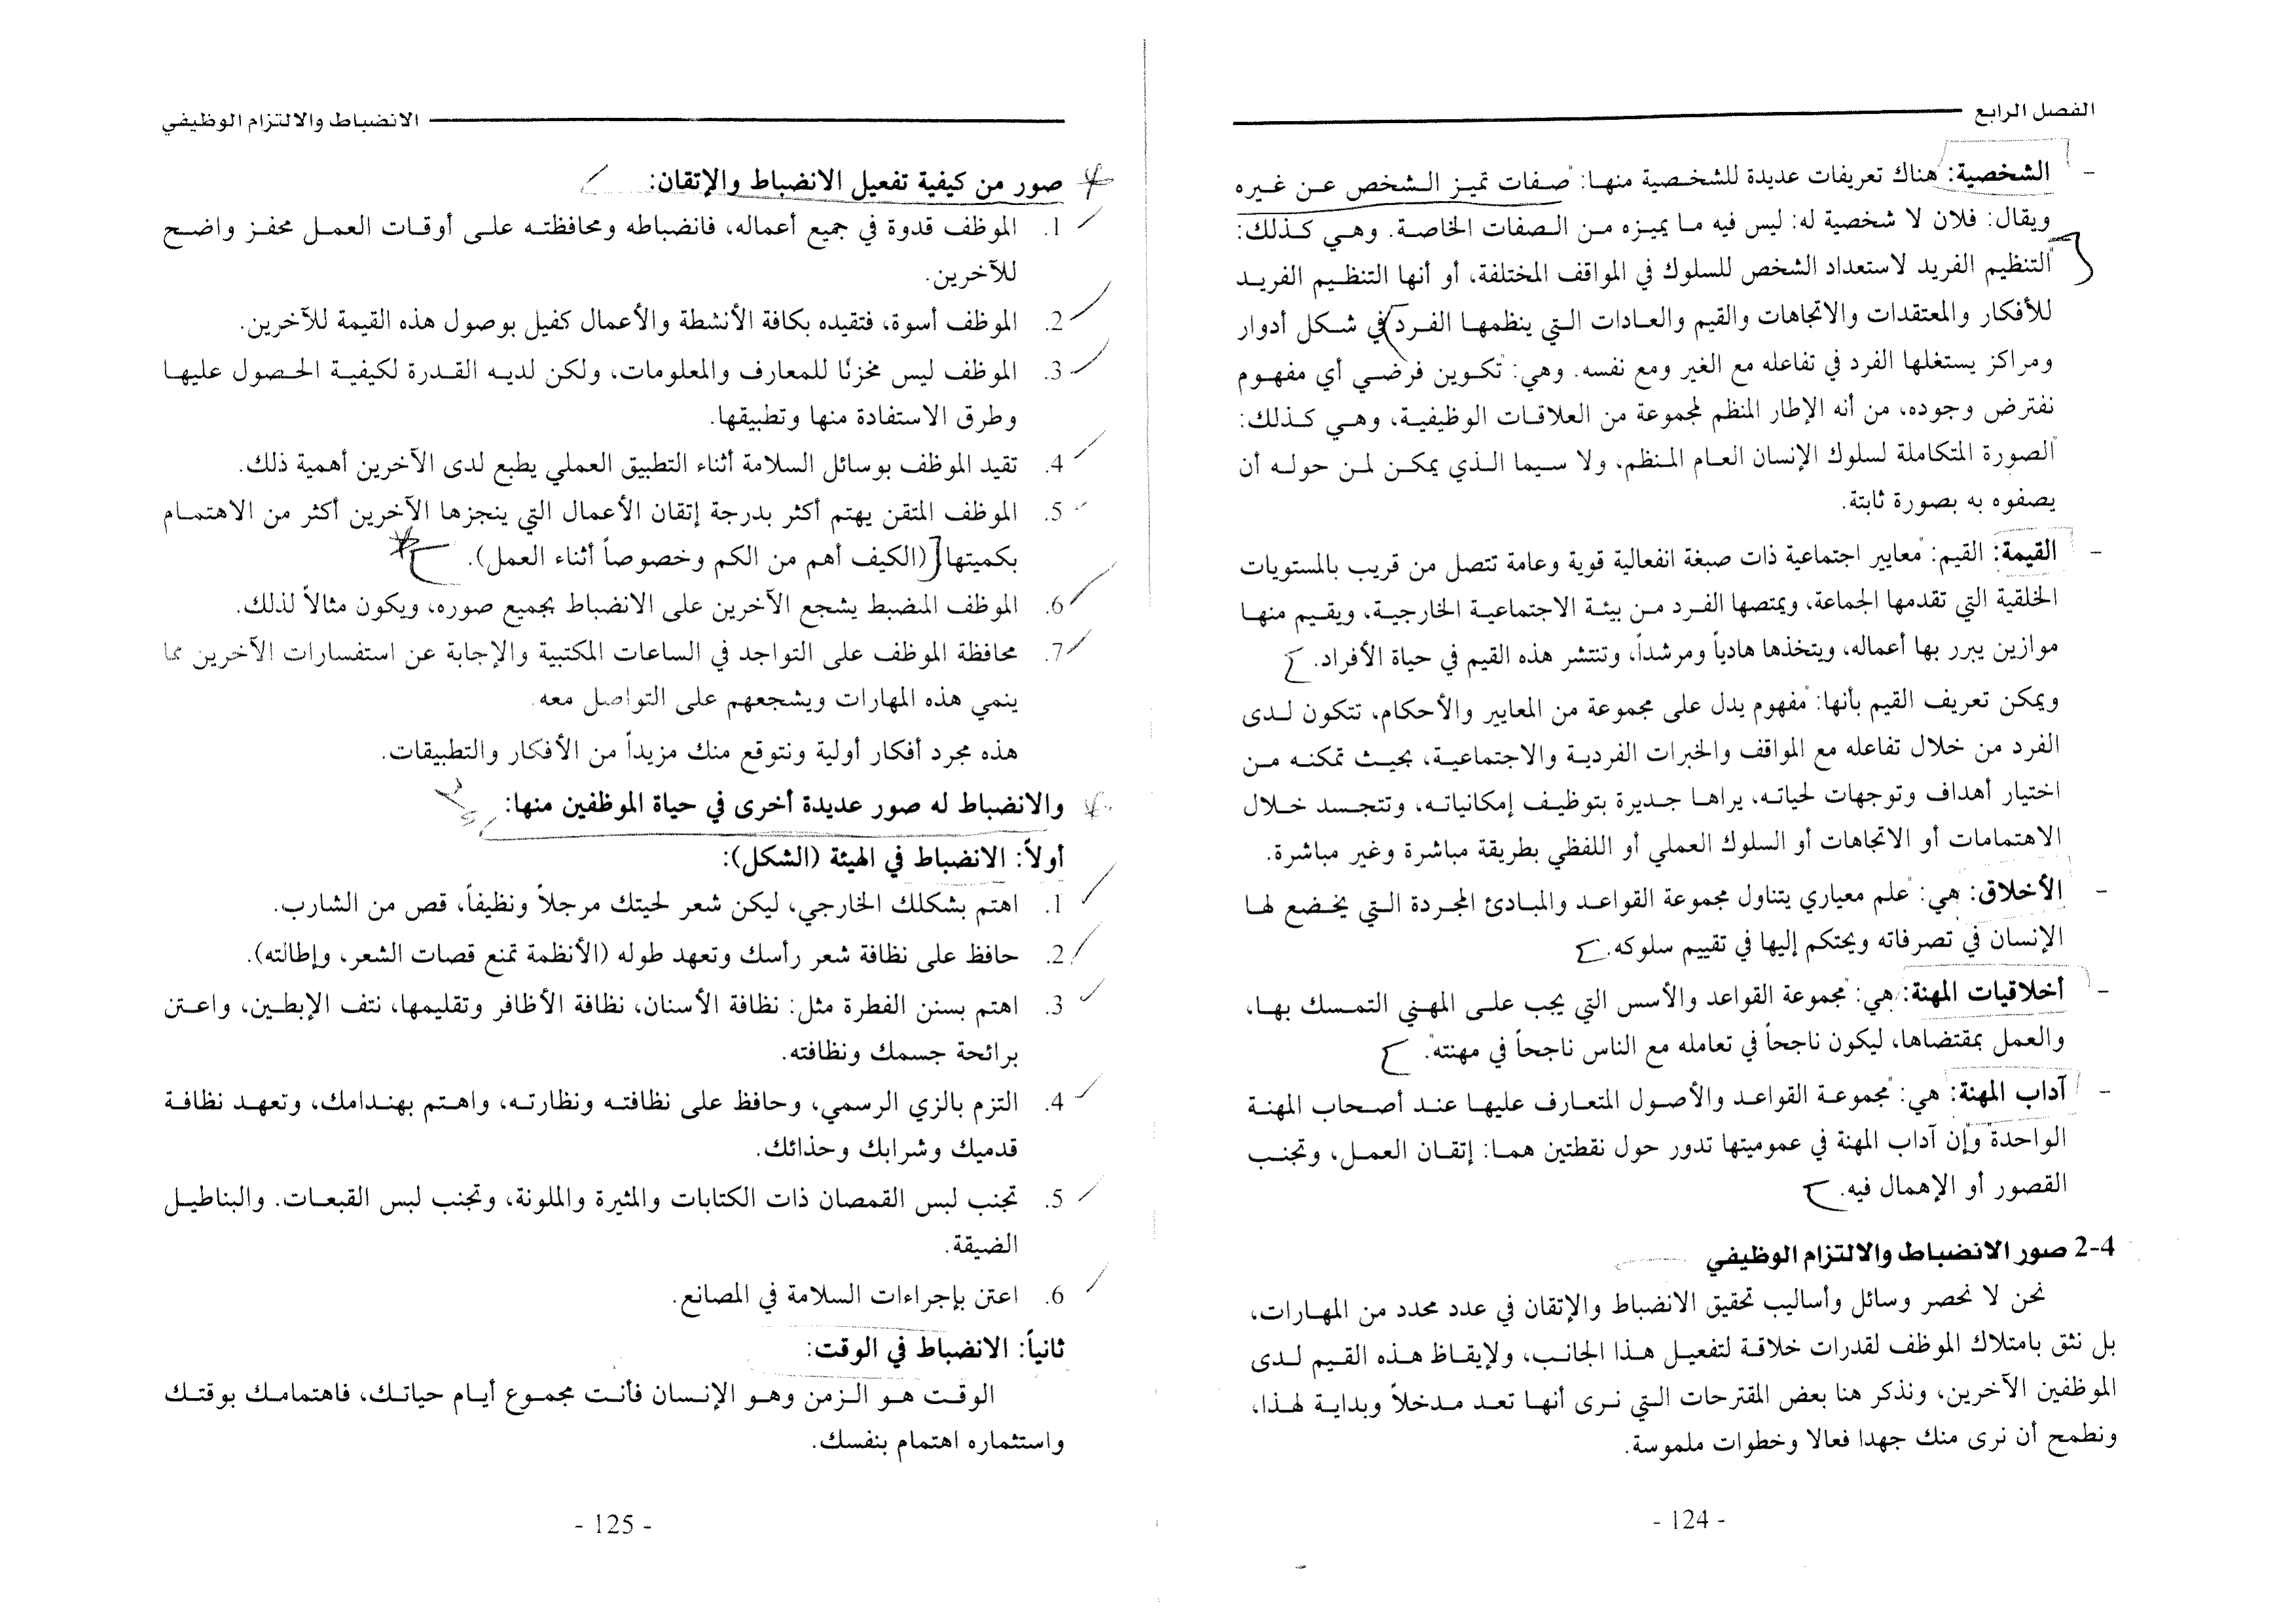 الفصل الرابع
- الشخصية: هناك تعريفات عديدة للشخصية منها: "صفات تميز الشخص عن غيره
ويقال: فلان لا شخصية له: ليس فيه ما يميزه من الصفات الخاصة. وهي كذلك:
"التنظيم الفريد لاستعداد الشخص للسلوك في المواقف المختلفة، أو أنها التنظيم الفريد
للأفكار والمعتقدات والاتجاهات والقيم والعادات التي ينظمها الفرد في شكل أدوار
ومراكز يستغلها الفرد في تفاعله مع الغير ومع نفسه. وهي: "تكوين فرضي أي مفهوم
نفترض وجوده، من أنه الإطار المنظم لمجموعة من العلاقات الوظيفية، وهي كذلك:
"الصورة المتكاملة لسلوك الإنسان العام المنظم، ولا سيما الذي يمكن لمن حوله أن
يصفوه به بصورة ثابتة.
- القيمة: القيم: "معايير اجتماعية ذات صبغة انفعالية قوية وعامة تتصل من قريب بالمستويات
الخلقية التي تقدمها الجماعة، ويمتصها الفرد من بيئة الاجتماعية الخارجية، ويقيم منها
موازين يبرر بها أعماله، ويتخذها هادياً ومرشداً، وتنتشر هذه القيم في حياة الأفراد.
ويمكن تعريف القيم بأنها: "مفهوم يدل على مجموعة من المعايير والأحكام، تتكون لدى
الفرد من خلال تفاعله مع المواقف والخبرات الفردية والاجتماعية، بحيث تمكنه من
اختيار أهداف وتوجهات لحياته، يراها جديرة بتوظيف إمكانياته، وتتجسد خلال
الاهتمامات أو الاتجاهات أو السلوك العملي أو اللفظي بطريقة مباشرة وغير مباشرة.
- الأخلاق: هي: "علم معياري يتناول مجموعة القواعد والمبادئ المجردة التي يخضع لها
الإنسان في تصرفاته ويحتكم إليها في تقييم سلوكه.
- أخلاقيات المهنة: هي: "مجموعة القواعد والأسس التي يجب على المهني التمسك بها،
والعمل بمقتضاها، ليكون ناجحاً في تعامله مع الناس ناجحاً في مهنته".
- آداب المهنة: هي: "مجموعة القواعد والأصول المتعارف عليها عند أصحاب المهنة
الواحدة" وإن آداب المهنة في عموميتها تدور حول نقطتين هما: إتقان العمل، وتجنب
القصور أو الإهمال فيه.
2-4 صور الانضباط والالتزام الوظيفي
نحن لا نحصر وسائل وأساليب تحقيق الانضباط والإتقان في عدد محدد من المهارات،
بل نثق بامتلاك الموظف لقدرات خلاقة لتفعيل هذا الجانب، ولإيقاظ هذه القيم لدى
الموظفين الآخرين، ونذكر هنا بعض المقترحات التي نرى أنها تعد مدخلاً وبداية لهذا،
ونطمح أن نرى منك جهدا فعالا وخطوات ملموسة.
- 124 -
الانضباط والالتزام الوظيفي
صور من كيفية تفعيل الانضباط والإتقان:
1. الموظف قدوة في جميع أعماله، فانضباطه ومحافظته على أوقات العمل محفز واضح
للآخرين.
2. الموظف أسوة، فتقيده بكافة الأنشطة والأعمال كفيل بوصول هذه القيمة للآخرين.
3. الموظف ليس مخزنًا للمعارف والمعلومات، ولكن لديه القدرة لكيفية الحصول عليها
وطرق الاستفادة منها وتطبيقها.
4. تقيد الموظف بوسائل السلامة أثناء التطبيق العملي يطبع لدى الآخرين أهمية ذلك.
5. الموظف المتقن يهتم أكثر بدرجة إتقان الأعمال التي ينجزها الآخرين أكثر من الاهتمام
بكميتها (الكيف أهم من الكم وخصوصاً أثناء العمل).
6. الموظف المنضبط يشجع الآخرين على الانضباط بجميع صوره، ويكون مثالاً لذلك.
7. محافظة الموظف على التواجد في الساعات المكتبية والإجابة عن استفسارات الآخرين مما
ينمي هذه المهارات ويشجعهم على التواصل معه.
هذه مجرد أفكار أولية ونتوقع منك مزيداً من الأفكار والتطبيقات.
والانضباط له صور عديدة أخرى في حياة الموظفين منها:
أولاً: الانضباط في الهيئة (الشكل):
1. اهتم بشكلك الخارجي، ليكن شعر لحيتك مرجلاً ونظيفاً، قص من الشارب.
2. حافظ على نظافة شعر رأسك وتعهد طوله (الأنظمة تمنع قصات الشعر، وإطالته).
3. اهتم بسنن الفطرة مثل: نظافة الأسنان، نظافة الأظافر وتقليمها، نتف الإبطين، واعتن
برائحة جسمك ونظافته.
4. التزم بالزي الرسمي، وحافظ على نظافته ونظارته، واهتم بهندامك، وتعهد نظافة
قدميك وشرابك وحذائك.
5. تجنب لبس القمصان ذات الكتابات والمثيرة والملونة، وتجنب لبس القبعات. والبناطيل
الضيقة.
6. اعتن بإجراءات السلامة في المصانع.
ثانياً: الانضباط في الوقت:
الوقت هو الزمن وهو الإنسان فأنت مجموع أيام حياتك، فاهتمامك بوقتك
واستثماره اهتمام بنفسك.
- 125 -